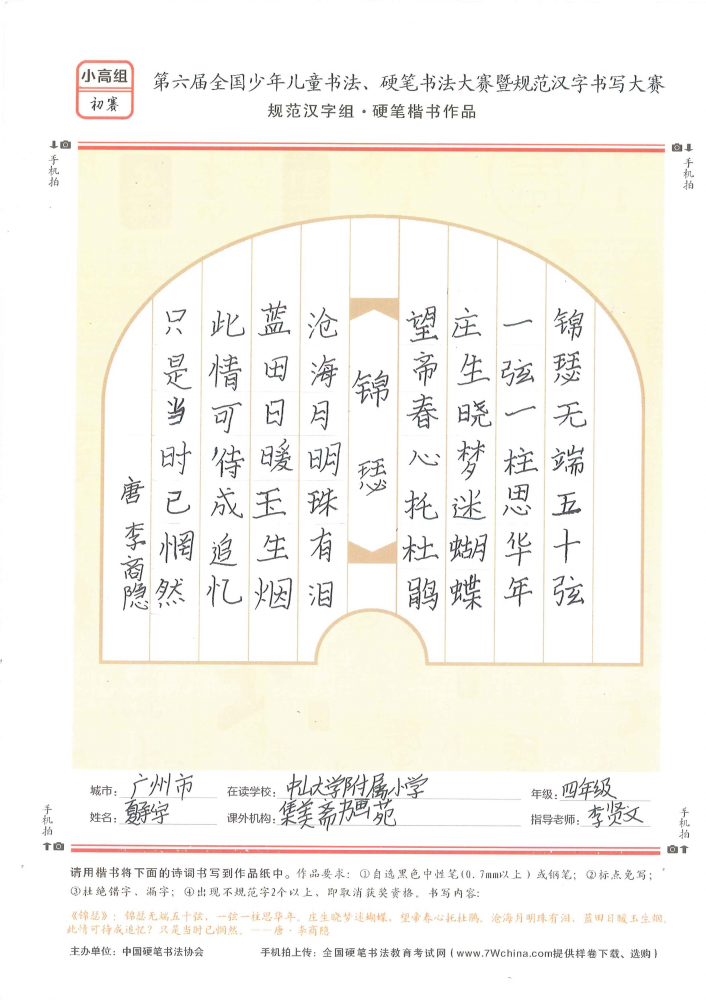 小高组
初赛
第六届全国少年儿童书法、硬笔书法大赛暨规范汉字书写大赛
规范汉字组·硬笔楷书作品
手机拍
手机拍
锦瑟无端五十弦
一弦一柱思华年
庄生晓梦迷蝴蝶
望帝春心托杜鹃
锦瑟
沧海月明珠有泪
蓝田日暖玉生烟
此情可待成追忆
只是当时已惘然
唐李商隐
城市：广州市
在读学校：中山大学附属小学
年级：四年级
姓名：
课外机构：集美斋书画苑
指导老师：李贤文
手机拍
手机拍
请用楷书将下面的诗词书写到作品纸中。作品要求：①自选黑色中性笔(0.7mm以上）或钢笔；②标点免写；
③杜绝错字、漏字；④出现不规范字2个以上，即取消获奖资格。书写内容：
《锦瑟》：锦瑟无端五十弦，一弦一柱思华年。庄生晓梦迷蝴蝶，望帝春心托杜鹃。沧海月明珠有泪，蓝田日暖玉生烟。
此情可待成追忆？只是当时已惘然。——唐·李商隐
主办单位：中国硬笔书法协会
手机拍上传：全国硬笔书法教育考试网（www.7Wchina.com提供样卷下载、选购）